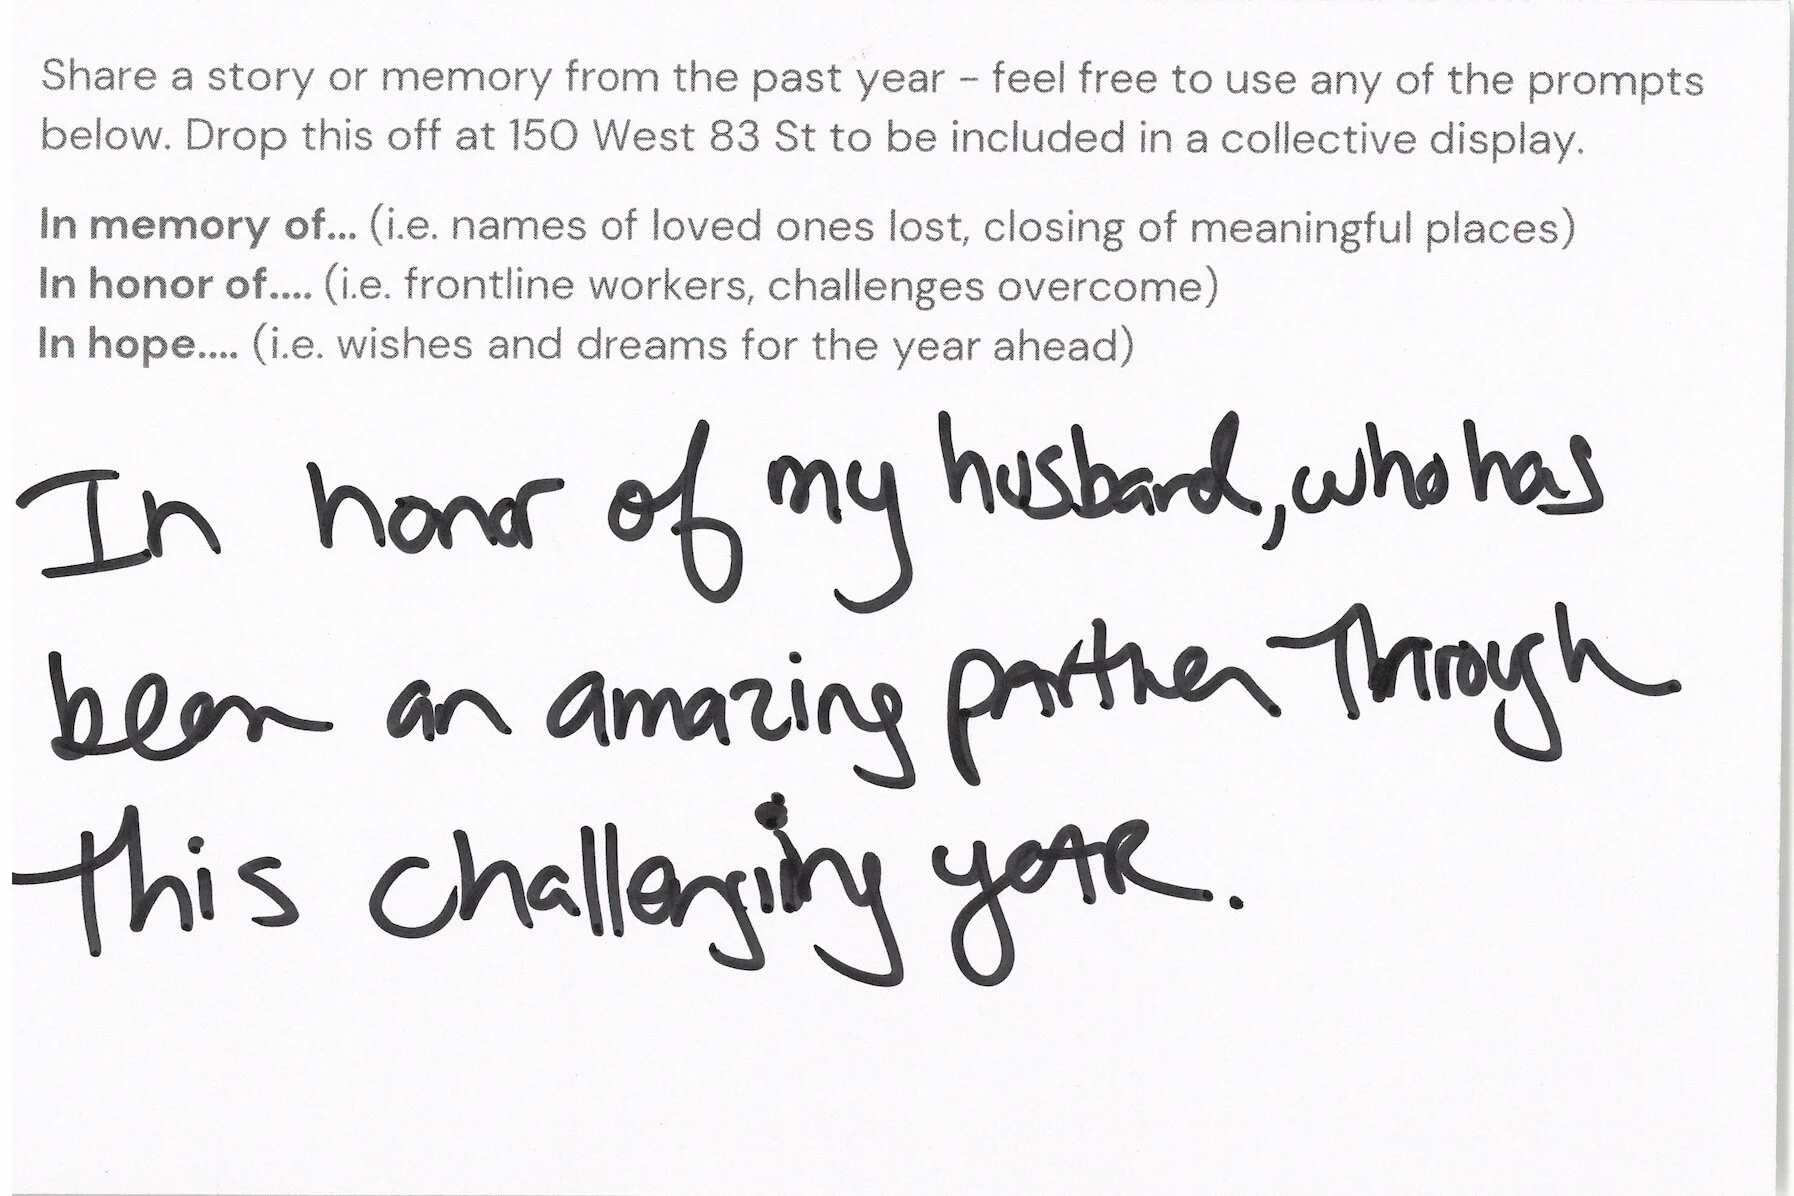 Share a story or memory from the past year – feel free to use any of the prompts
below. Drop this off at 150 West 83 St to be included in a collective display.
In memory of... (i.e. names of loved ones lost, closing of meaningful places)
In honor of.... (i.e. frontline workers, challenges overcome)
In hope.... (i.e. wishes and dreams for the year ahead)
In honor of my husband, who has
been an amazing partner through
this challenging year.